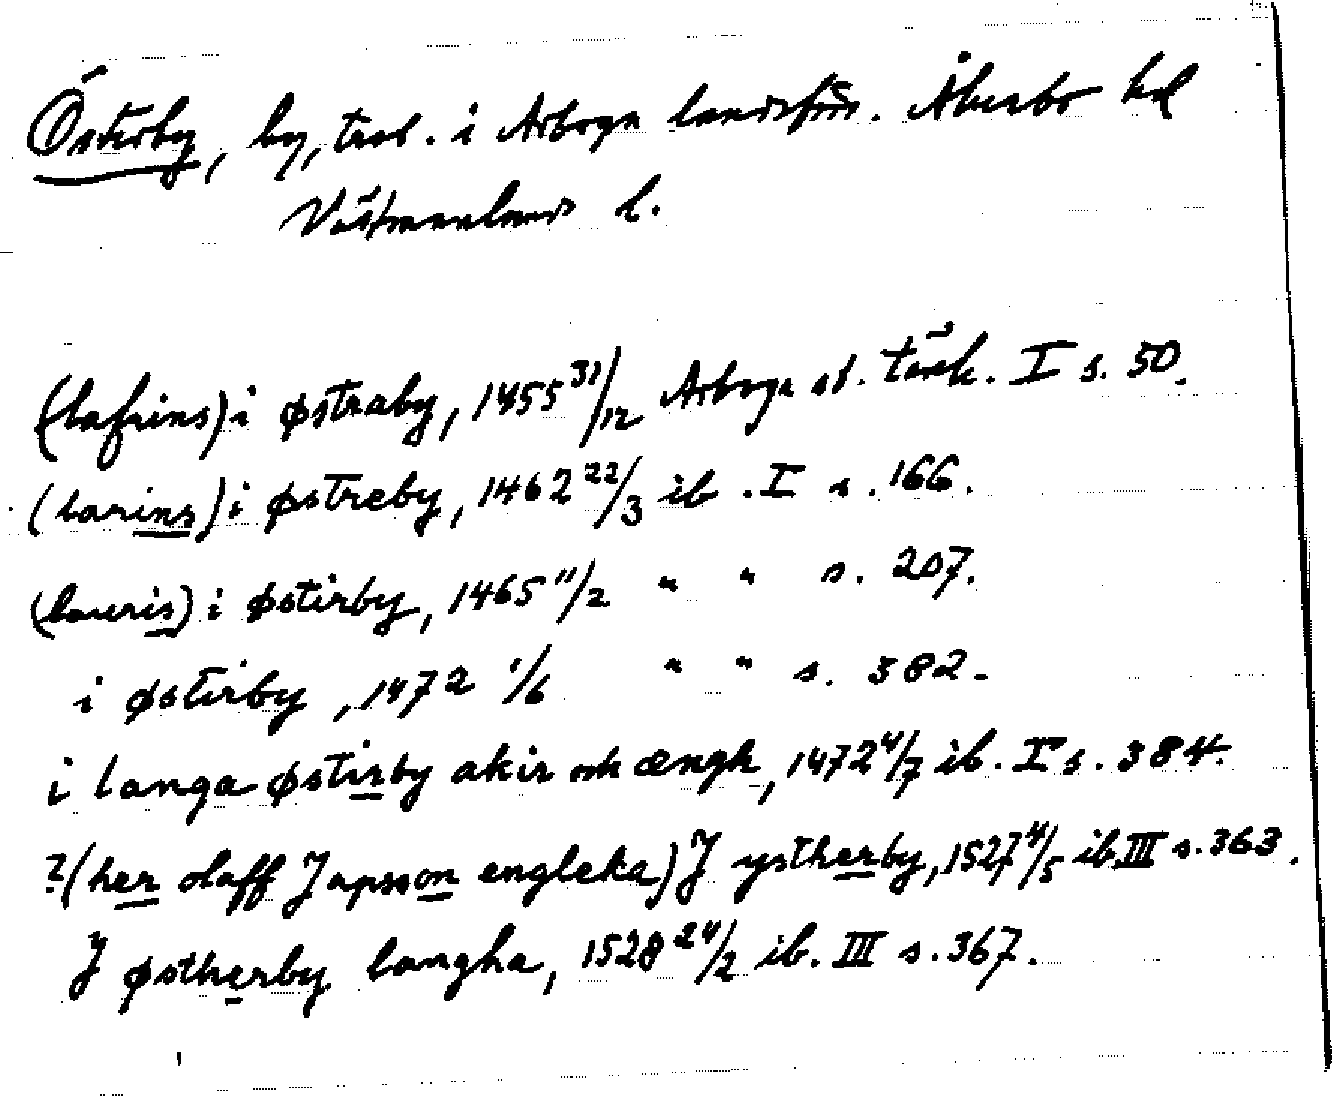 Österby, by, trol. i Arboga landsförs. Åkerbo hd
Västmanlands l.
(lafrins) i østraby, 1455 31/12 Arboga st. tänk. I s. 50.
(larins) i østreby, 1462 22/3 ib. I s. 166.
(lauris) i østirby, 1465 11/2 " " s. 207.
i østirby, 1472 1/6 " " s. 382.
i langa østirby akir och ængh, 1472 4/7 ib. I s. 384.
?(her olaff Japsson engleka) J ystherby, 1527 4/5 ib. III s. 363.
J østherby langha, 1528 24/2 ib. III s. 367.